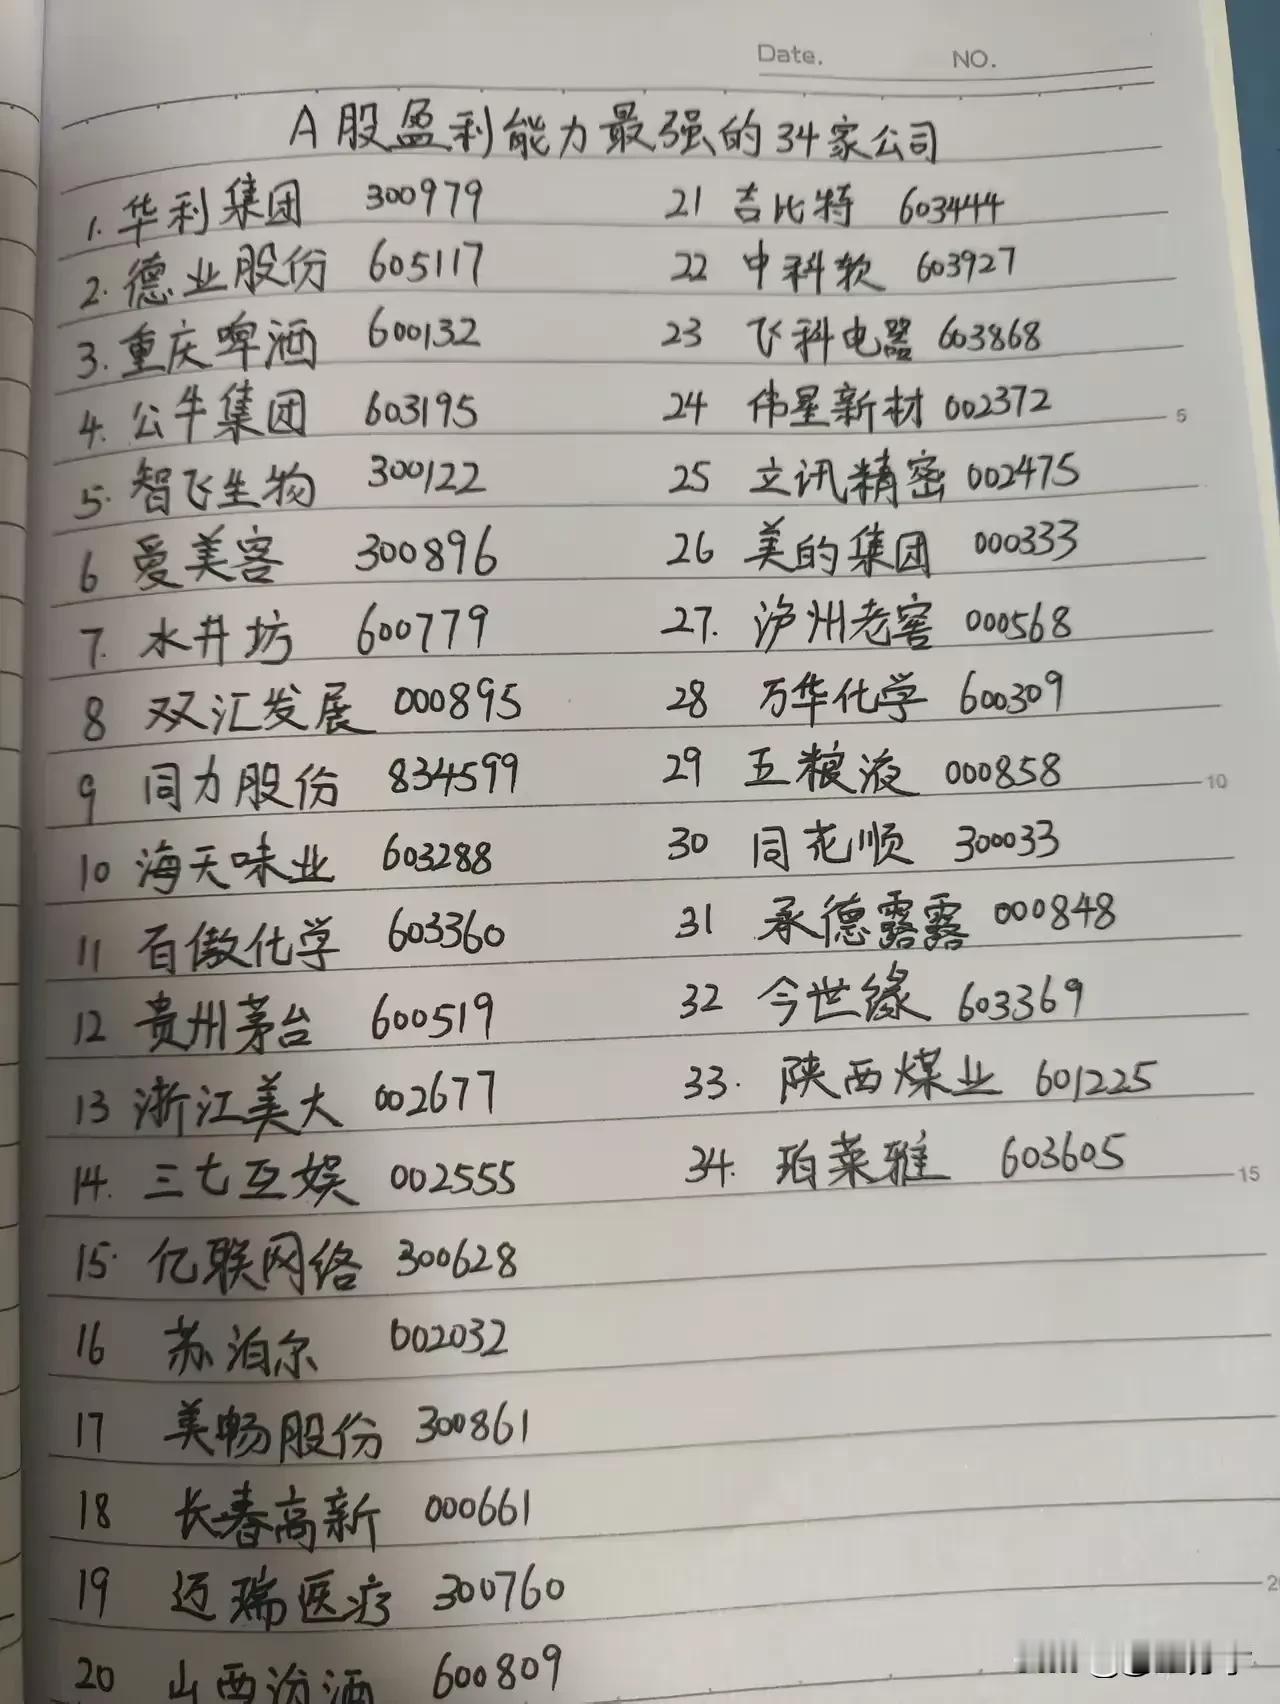 Date.
NO.
A股盈利能力最强的34家公司
1. 华利集团 300979
2. 德业股份 605117
3. 重庆啤酒 600132
4. 公牛集团 603195
5. 智飞生物 300122
6 爱美客 300896
7. 水井坊 600779
8 双汇发展 000895
9 同力股份 834599
10 海天味业 603288
11 百傲化学 603360
12 贵州茅台 600519
13 浙江美大 002677
14. 三七互娱 002555
15. 亿联网络 300628
16 苏泊尔 002032
17 美畅股份 300861
18 长春高新 000661
19 迈瑞医疗 300760
20 山西汾酒 600809
21 吉比特 603444
22 中科软 603927
23 飞科电器 603868
24 伟星新材 002372
25 立讯精密 002475
26 美的集团 000333
27. 泸州老窖 000568
28 万华化学 600309
29 五粮液 000858
30 同花顺 300033
31 承德露露 000848
32 今世缘 603369
33. 陕西煤业 601225
34. 珀莱雅 603605
5
10
15